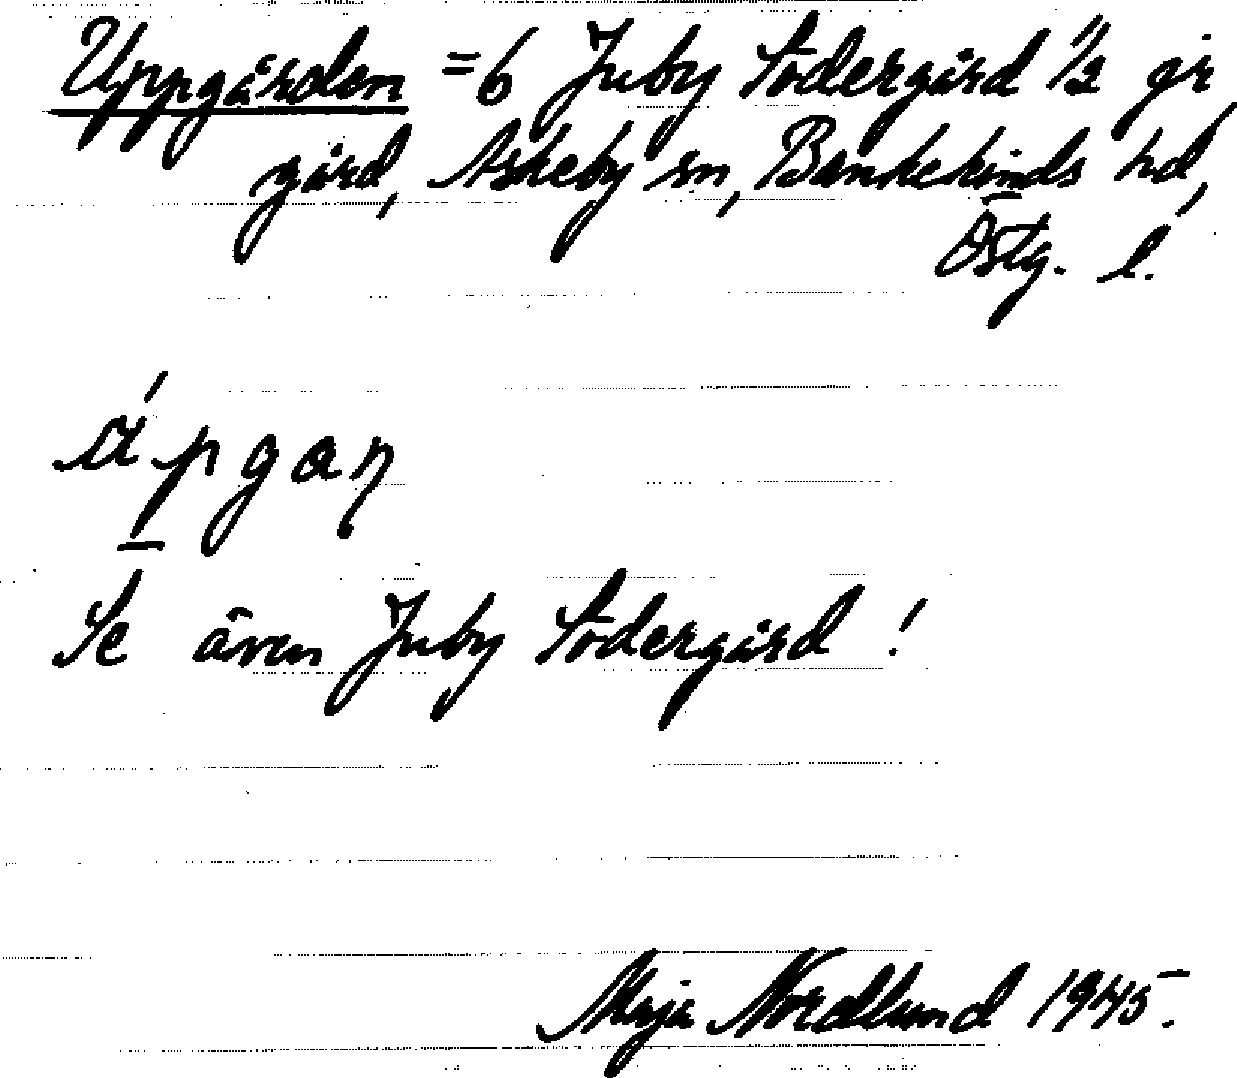 Uppgården = 6 Juby Södergård 1/2 gr
gård, Askeby sn, Bankekinds hd,
Östg. l.
á p g a ṇ
Se även Juby Södergård !
Maja Nordlund 1945.